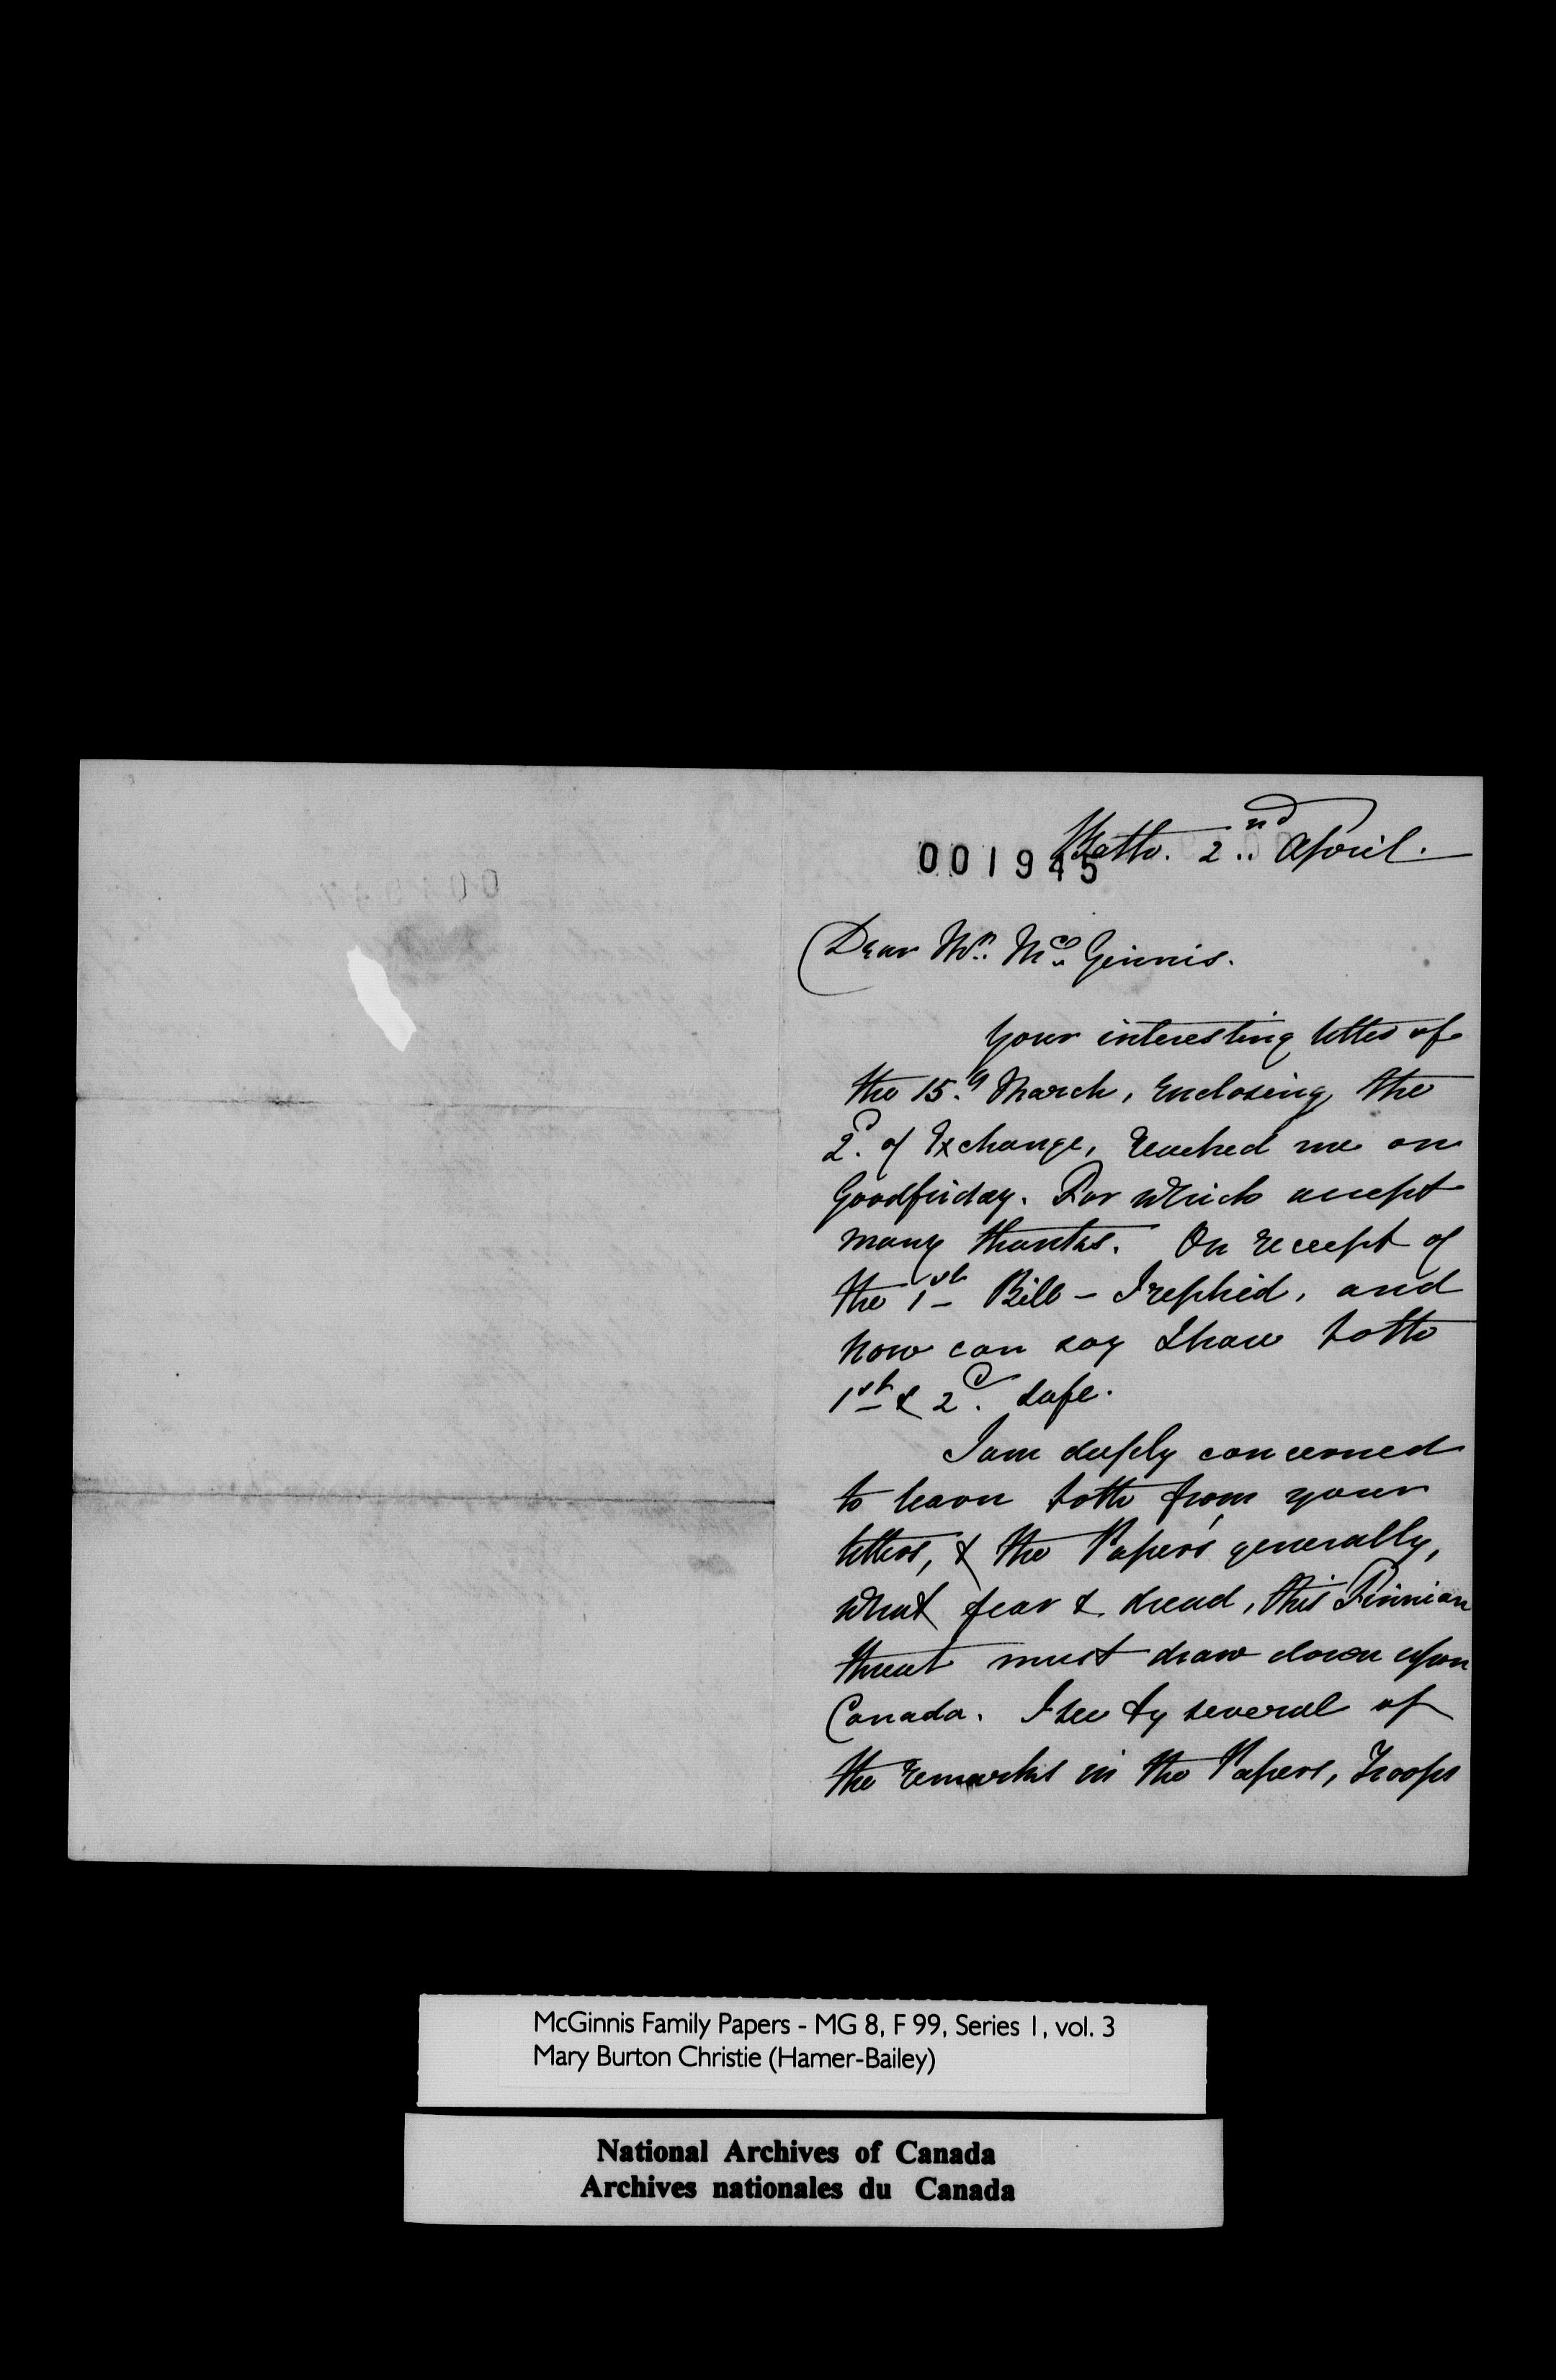 001945
Bath. 2nd April.
Dear Mr. McGinnis.
Your interesting letter of
the 15.th March, enclosing the
2d. of Exchange, reached me on
Goodfriday. For which accept
many thanks. On receept of
the 1st Bill - I replied, and
now can say I have both
1st & 2d. safe.
I am deeply concerned
to learn both from your
letters, & the Papers generally,
what fear & dread, this Finnian
threat must draw down upon
Canada. I see by several of
the remarks in the Papers, Troops
McGinnis Family Papers - MG 8, F 99, Series 1, vol. 3
Mary Burton Christie (Hamer-Bailey)
National Archives of Canada
Archives nationales du Canada